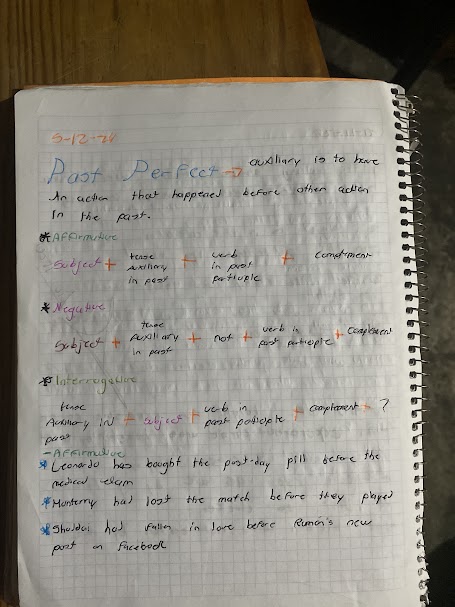 5-12-24
Past Perfect → auxiliary is to have
An action that happened before other action
In the past.
* Affirmative
Subject + tense Auxiliary in past + verb in past participle + complement
* Negative
Subject + tense Auxiliary in past + not + verb in past participle + complement
* Interrogative
tense Auxiliary in past + subject + verb in past participle + complement + ?
- Affirmative
* Leonardo has bought the post-day pill before the
medical
* Monterrey had lost the match before they played
* had fallen in love before new
post on Facebook